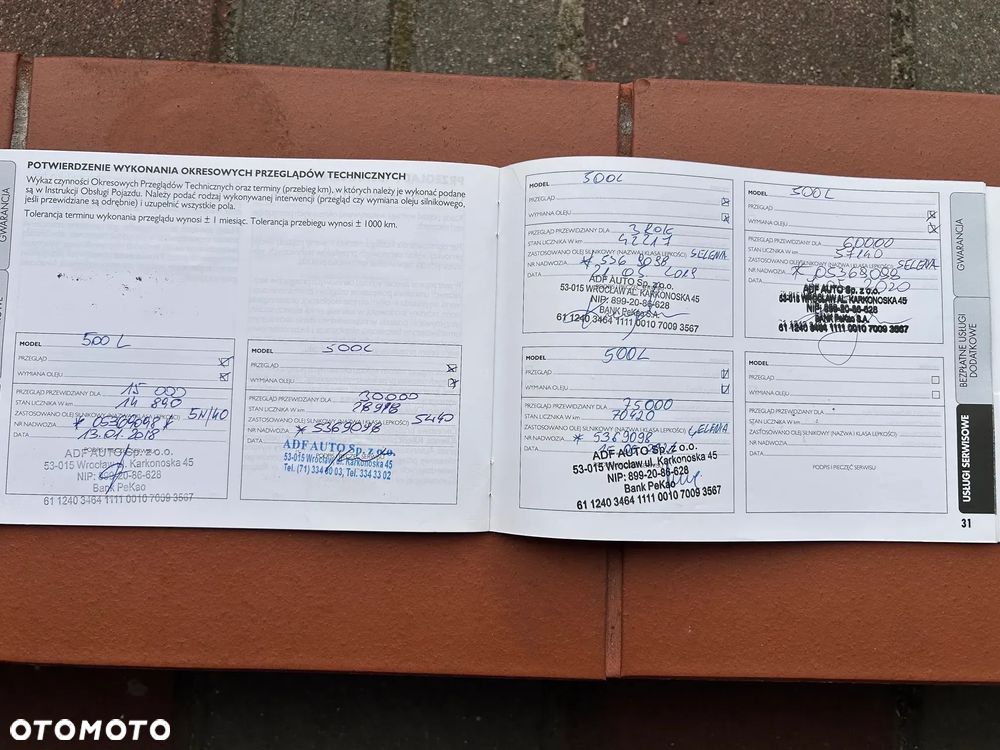 POTWIERDZENIE WYKONANIA OKRESOWYCH PRZEGLĄDÓW TECHNICZNYCH
Wykaz czynności Okresowych Przeglądów Technicznych oraz terminy (przebieg km), w których należy je wykonać podane
są w Instrukcji Obsługi Pojazdu. Należy podać rodzaj wykonywanej interwencji (przegląd czy wymiana oleju silnikowego,
jeśli przewidziane są odrębnie) i uzupełnić wszystkie pola.
Tolerancja terminu wykonania przeglądu wynosi ± 1 miesiąc. Tolerancja przebiegu wynosi ± 1000 km.
GWARANCJA
MODEL 500L
PRZEGLĄD
WYMIANA OLEJU
PRZEGLĄD PRZEWIDZIANY DLA 15 000
STAN LICZNIKA W km 14 890
ZASTOSOWANO OLEJ SILNIKOWY (NAZWA I KLASA LEPKOŚCI) 5N/40
NR NADWOZIA * 05369098 *
DATA 13.01.2018
ADF AUTO Sp. z o.o.
53-015 Wrocław, ul. Karkonoska 45
NIP: 899-20-86-628
Bank PeKao
61 1240 3464 1111 0010 7009 3567
MODEL 500L
PRZEGLĄD
WYMIANA OLEJU
PRZEGLĄD PRZEWIDZIANY DLA 30000
STAN LICZNIKA W km 28918
ZASTOSOWANO OLEJ SILNIKOWY (NAZWA I KLASA LEPKOŚCI) 5W40
NR NADWOZIA * 5369098
DATA
ADF AUTO Sp. z o.o.
53-015 Wrocław, ul. Karkonoska 45
Tel. (71) 334 60 03, Tel. 334 33 02
MODEL 500L
PRZEGLĄD
WYMIANA OLEJU
PRZEGLĄD PRZEWIDZIANY DLA 3 ROK
STAN LICZNIKA W km 42217
ZASTOSOWANO OLEJ SILNIKOWY (NAZWA I KLASA LEPKOŚCI) SELENIA
NR NADWOZIA * 5369098
DATA 21.05.2019
ADF AUTO Sp. z o.o.
53-015 WROCŁAW AL. KARKONOSKA 45
NIP: 899-20-86-628
BANK PeKao S.A.
61 1240 3464 1111 0010 7009 3567
MODEL 500L
PRZEGLĄD
WYMIANA OLEJU
PRZEGLĄD PRZEWIDZIANY DLA 60000
STAN LICZNIKA W km 57240
ZASTOSOWANO OLEJ SILNIKOWY (NAZWA I KLASA LEPKOŚCI) SELENIA
NR NADWOZIA * 05369098
DATA 2020
ADF AUTO Sp. z o.o.
53-015 WROCŁAW AL. KARKONOSKA 45
NIP: 899-20-86-628
BANK PeKao S.A.
61 1240 3464 1111 0010 7009 3567
MODEL 500L
PRZEGLĄD
WYMIANA OLEJU
PRZEGLĄD PRZEWIDZIANY DLA 75000
STAN LICZNIKA W km 70420
ZASTOSOWANO OLEJ SILNIKOWY (NAZWA I KLASA LEPKOŚCI) SELENIA
NR NADWOZIA * 5369098
DATA
ADF AUTO Sp. z o.o.
53-015 Wrocław ul. Karkonoska 45
NIP: 899-20-86-628
Bank PeKao
61 1240 3464 1111 0010 7009 3567
MODEL
PRZEGLĄD
WYMIANA OLEJU
PRZEGLĄD PRZEWIDZIANY DLA
STAN LICZNIKA W km
ZASTOSOWANO OLEJ SILNIKOWY (NAZWA I KLASA LEPKOŚCI)
NR NADWOZIA
DATA
PODPIS I PIECZĘĆ SERWISU
GWARANCJA
BEZPŁATNE USŁUGI
DODATKOWE
USŁUGI SERWISOWE
31
OTOMOTO